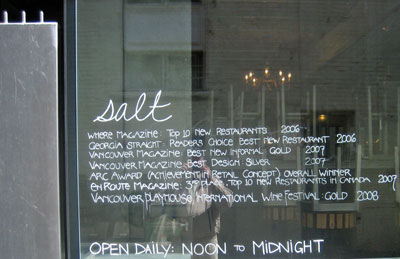 salt
WHERE MAGAZINE: TOP 10 NEW RESTAURANTS 2006
GEORGIA STRAIGHT: READERS CHOICE BEST NEW RESTAURANT 2006
VANCOUVER MAGAZINE: BEST NEW INFORMAL: GOLD 2007
VANCOUVER MAGAZINE: BEST DESIGN SILVER 2007
ARC AWARD (ACHIEVEMENT IN RETAIL CONCEPT) OVERALL WINNER
EN ROUTE MAGAZINE: 3RD PLACE, TOP 10 NEW RESTAURANTS IN CANADA 2007
VANCOUVER PLAYHOUSE INTERNATIONAL WINE FESTIVAL: GOLD 2008
OPEN DAILY: NOON TO MIDNIGHT